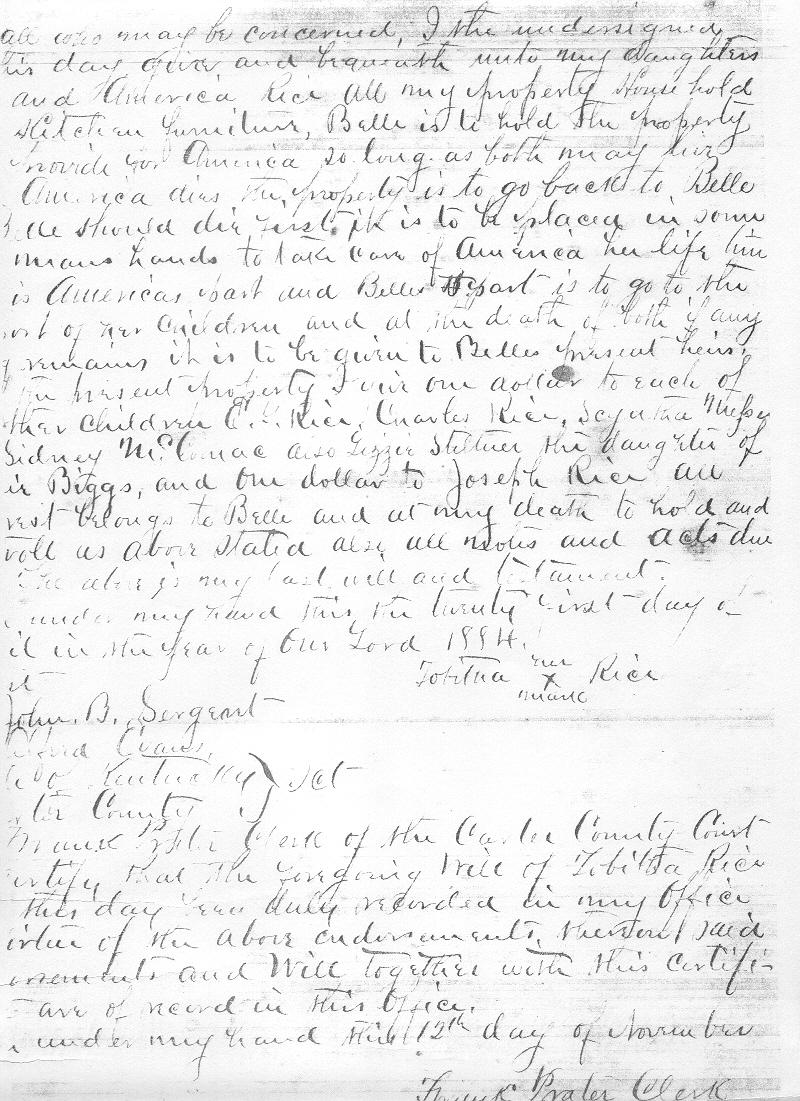 all who may be concerned, I the undersigned
this day give and bequeath unto my daughters
and America Rice all my property House hold
Kitchen furniture, Belle is to hold the property
provide for America so long as both may live
America dies the property is to go back to Belle
Belle should die first, it is to be placed in some
mans hands to take care of America her life time
is Americas part and Belles part is to go to the
of her children and at the death of both if any
remains it is to be given to Belles present heirs.
present property I give one dollar to each of
ther children C. Y. Rice, Charles Rice,
Sidney McComac also Lizzie the daughter of
Biggs, and one dollar to Joseph Rice all
rest belongs to Belle and at my death to hold and
as above stated also all nots and acts due
The above is my last will and testament.
under my hand this the twenty first day of
il in the year of Our Lord 1894.
Tobitha her x mark Rice
st
John. B. Sergent
Evans,
of Kentucky } sct
ter County
Frank Prater Clerk of the Carter County Court
ertify that the foregoing Will of Tobitha Rice
this day been duly recorded in my Office
irtue of the above endorsements, thereon said
orsements and Will together with this certifi-
are of record in this Office.
under my hand this 12th day of November
Frank Prater Clerk